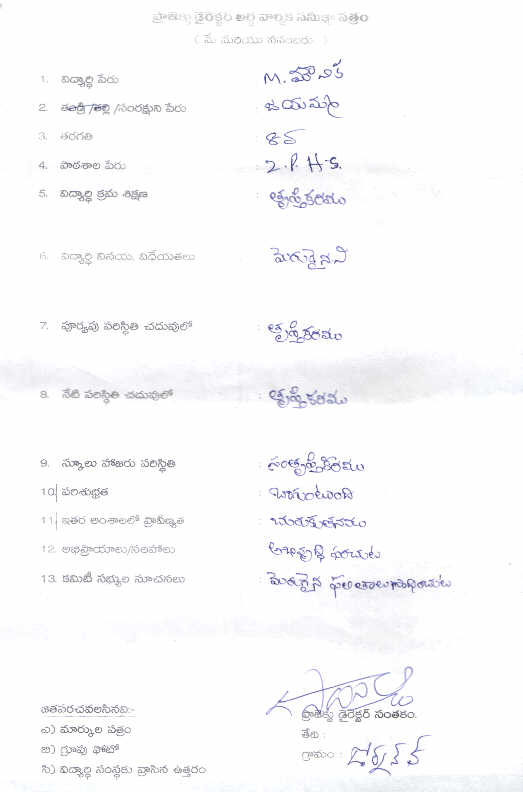 ప్రాజెక్టు డైరెక్టర్ అర్ధ వార్షిక సమీక్షా పత్రం
( మే మరియు నవంబరు )
1. విద్యార్ధి పేరు : M. మౌనిక
2. తండ్రి /తల్లి /సంరక్షుని పేరు : జయమ్మ
3. తరగతి : 8వ
4. పాఠశాల పేరు : Z.P. H.S.
5. విద్యార్ధి క్రమ శిక్షణ : తృప్తికరము
6. విద్యార్ధి వినయ, విధేయతలు : మెరుగైనవి
7. పూర్వపు పరిస్థితి చదువులో : తృప్తికరము
8. నేటి పరిస్థితి చదువులో : తృప్తికరము
9. స్కూలు హాజరు పరిస్థితి : సంతృప్తికరము
10. పరిశుభ్రత : బాగుంటుంది
11. ఇతర అంశాలలో ప్రావీణ్యత : చురుకుతనము
12. అభిప్రాయాలు/సలహాలు : అభివృద్ధి పరచుట
13. కమిటీ సభ్యుల సూచనలు : మెరుగైన ఫలితాలు సాధించుట
జతపరచవలసినవి:-
ప్రాజెక్టు డైరెక్టర్ సంతకం.
ఎ) మార్కుల పత్రం
తేది :
బి) గ్రూపు ఫోటో
గ్రామం :
సి) విద్యార్ధి సంస్థకు వ్రాసిన ఉత్తరం